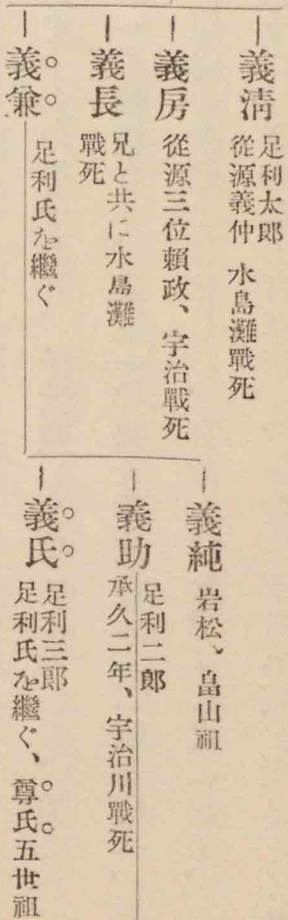 義淸
足利太郎
從源義仲 水島灘戰死
義房
從源三位賴政、宇治戰死
義長
兄と共に水島灘
戰死
義兼
足利氏を繼ぐ
義純
岩松、畠山祖
義助
足利二郎
承久二年、宇治川戰死
義氏
足利三郎
足利氏を繼ぐ、尊氏五世祖